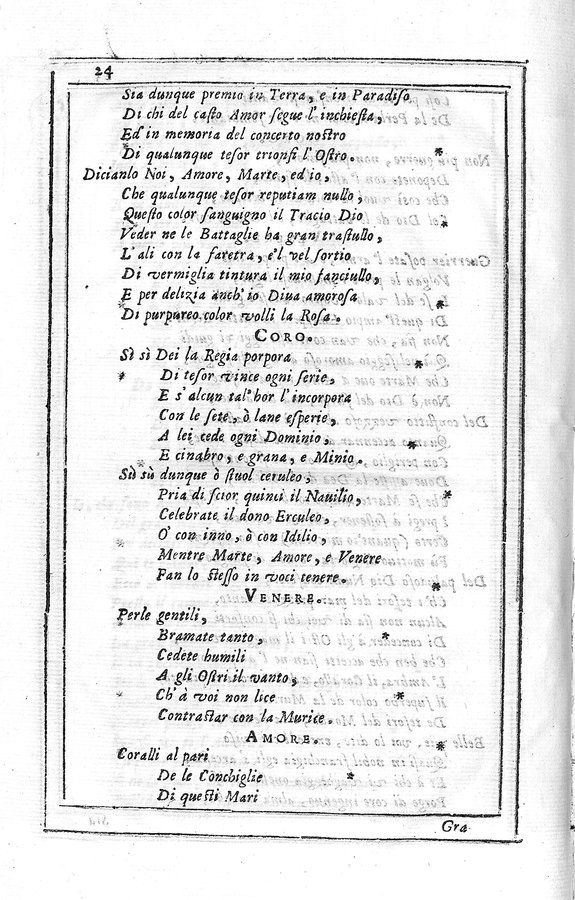 24
Sia dunque premio in Terra, e in Paradiſo
Di chi del caſto Amor ſegue l'inchieſta,
Ed in memoria del concerto noſtro
Di qualunque teſor trionfi l'Oſtro.
Dicianlo Noi, Amore, Marte, ed io,
Che qualunque teſor reputiam nullo,
Queſto color ſanguigno il Tracio Dio
Veder ne le Battaglie ha gran traſtullo,
L'ali con la faretra, e'l vel ſortìo
Di vermiglia tintura il mio fanciullo,
E per delizia anch'io Diva amoroſa
Di purpureo color volli la Roſa.
CORO.
Sì sì Dei la Regia porpora
Di teſor vince ogni ſerie,
E s'alcun tal'hor l'incorpora
Con le ſete, ò lane eſperie,
A lei cede ogni Dominio,
E cinabro, e grana, e Minio.
Sù sù dunque ò ſtuol ceruleo,
Pria di ſcior quinci il Navilio,
Celebrate il dono Erculeo,
O' con inno, ò con Idilio,
Mentre Marte, Amore, e Venere
Fan lo ſteſſo in voci tenere.
VENERE.
Perle gentili,
Bramate tanto,
Cedete humili
A gli Oſtri il vanto,
Ch'à voi non lice
Contraſtar con la Murice.
AMORE.
Coralli al pari
De le Conchiglie
Di queſti Mari
Gra